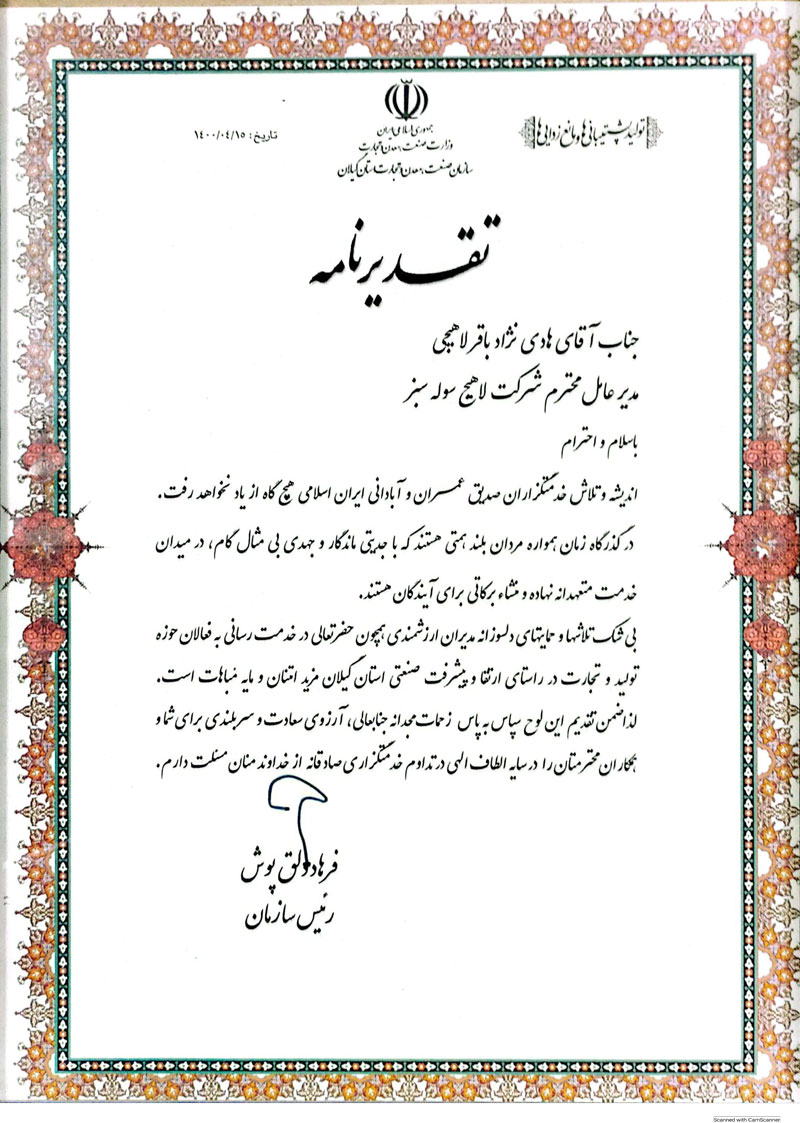 جمهوری اسلامی ایران
وزارت صنعت، معدن و تجارت
سازمان صنعت، معدن و تجارت استان گیلان
تولید، پشتیبانی ها و مانع زدایی ها
تاریخ: ۱٤۰۰/۰٤/۱٥
تقدیرنامه
جناب آقای هادی نژاد باقر لاهیجی
مدیر عامل محترم شرکت لاهیج سوله سبز
باسلام و احترام
اندیشه و تلاش خدمتگزاران صدیق عمران و آبادانی ایران اسلامی هیچ گاه از یاد نخواهد رفت.
در گذرگاه زمان همواره مردان بلند همتی هستند که با جدیتی ماندگار و جهدی بی مثال گام، در میدان
خدمت متعهدانه نهاده و منشاء برکاتی برای آیندگان هستند.
بی شک تلاشها و حمایتهای دلسوزانه مدیران ارزشمندی همچون حضرتعالی در خدمت رسانی به فعالان حوزه
تولید و تجارت در راستای ارتقا و پیشرفت صنعتی استان گیلان مزید امتنان و مایه مباهات است.
لذا ضمن تقدیم این لوح سپاس به پاس زحمات مجدانه جنابعالی، آرزوی سعادت و سربلندی برای شما و
همکاران محترمتان را در سایه الطاف الهی در تداوم خدمتگزاری صادقانه از خداوند منان مسئلت دارم.
فرهاد دلق پوش
رئیس سازمان
Scanned with CamScanner